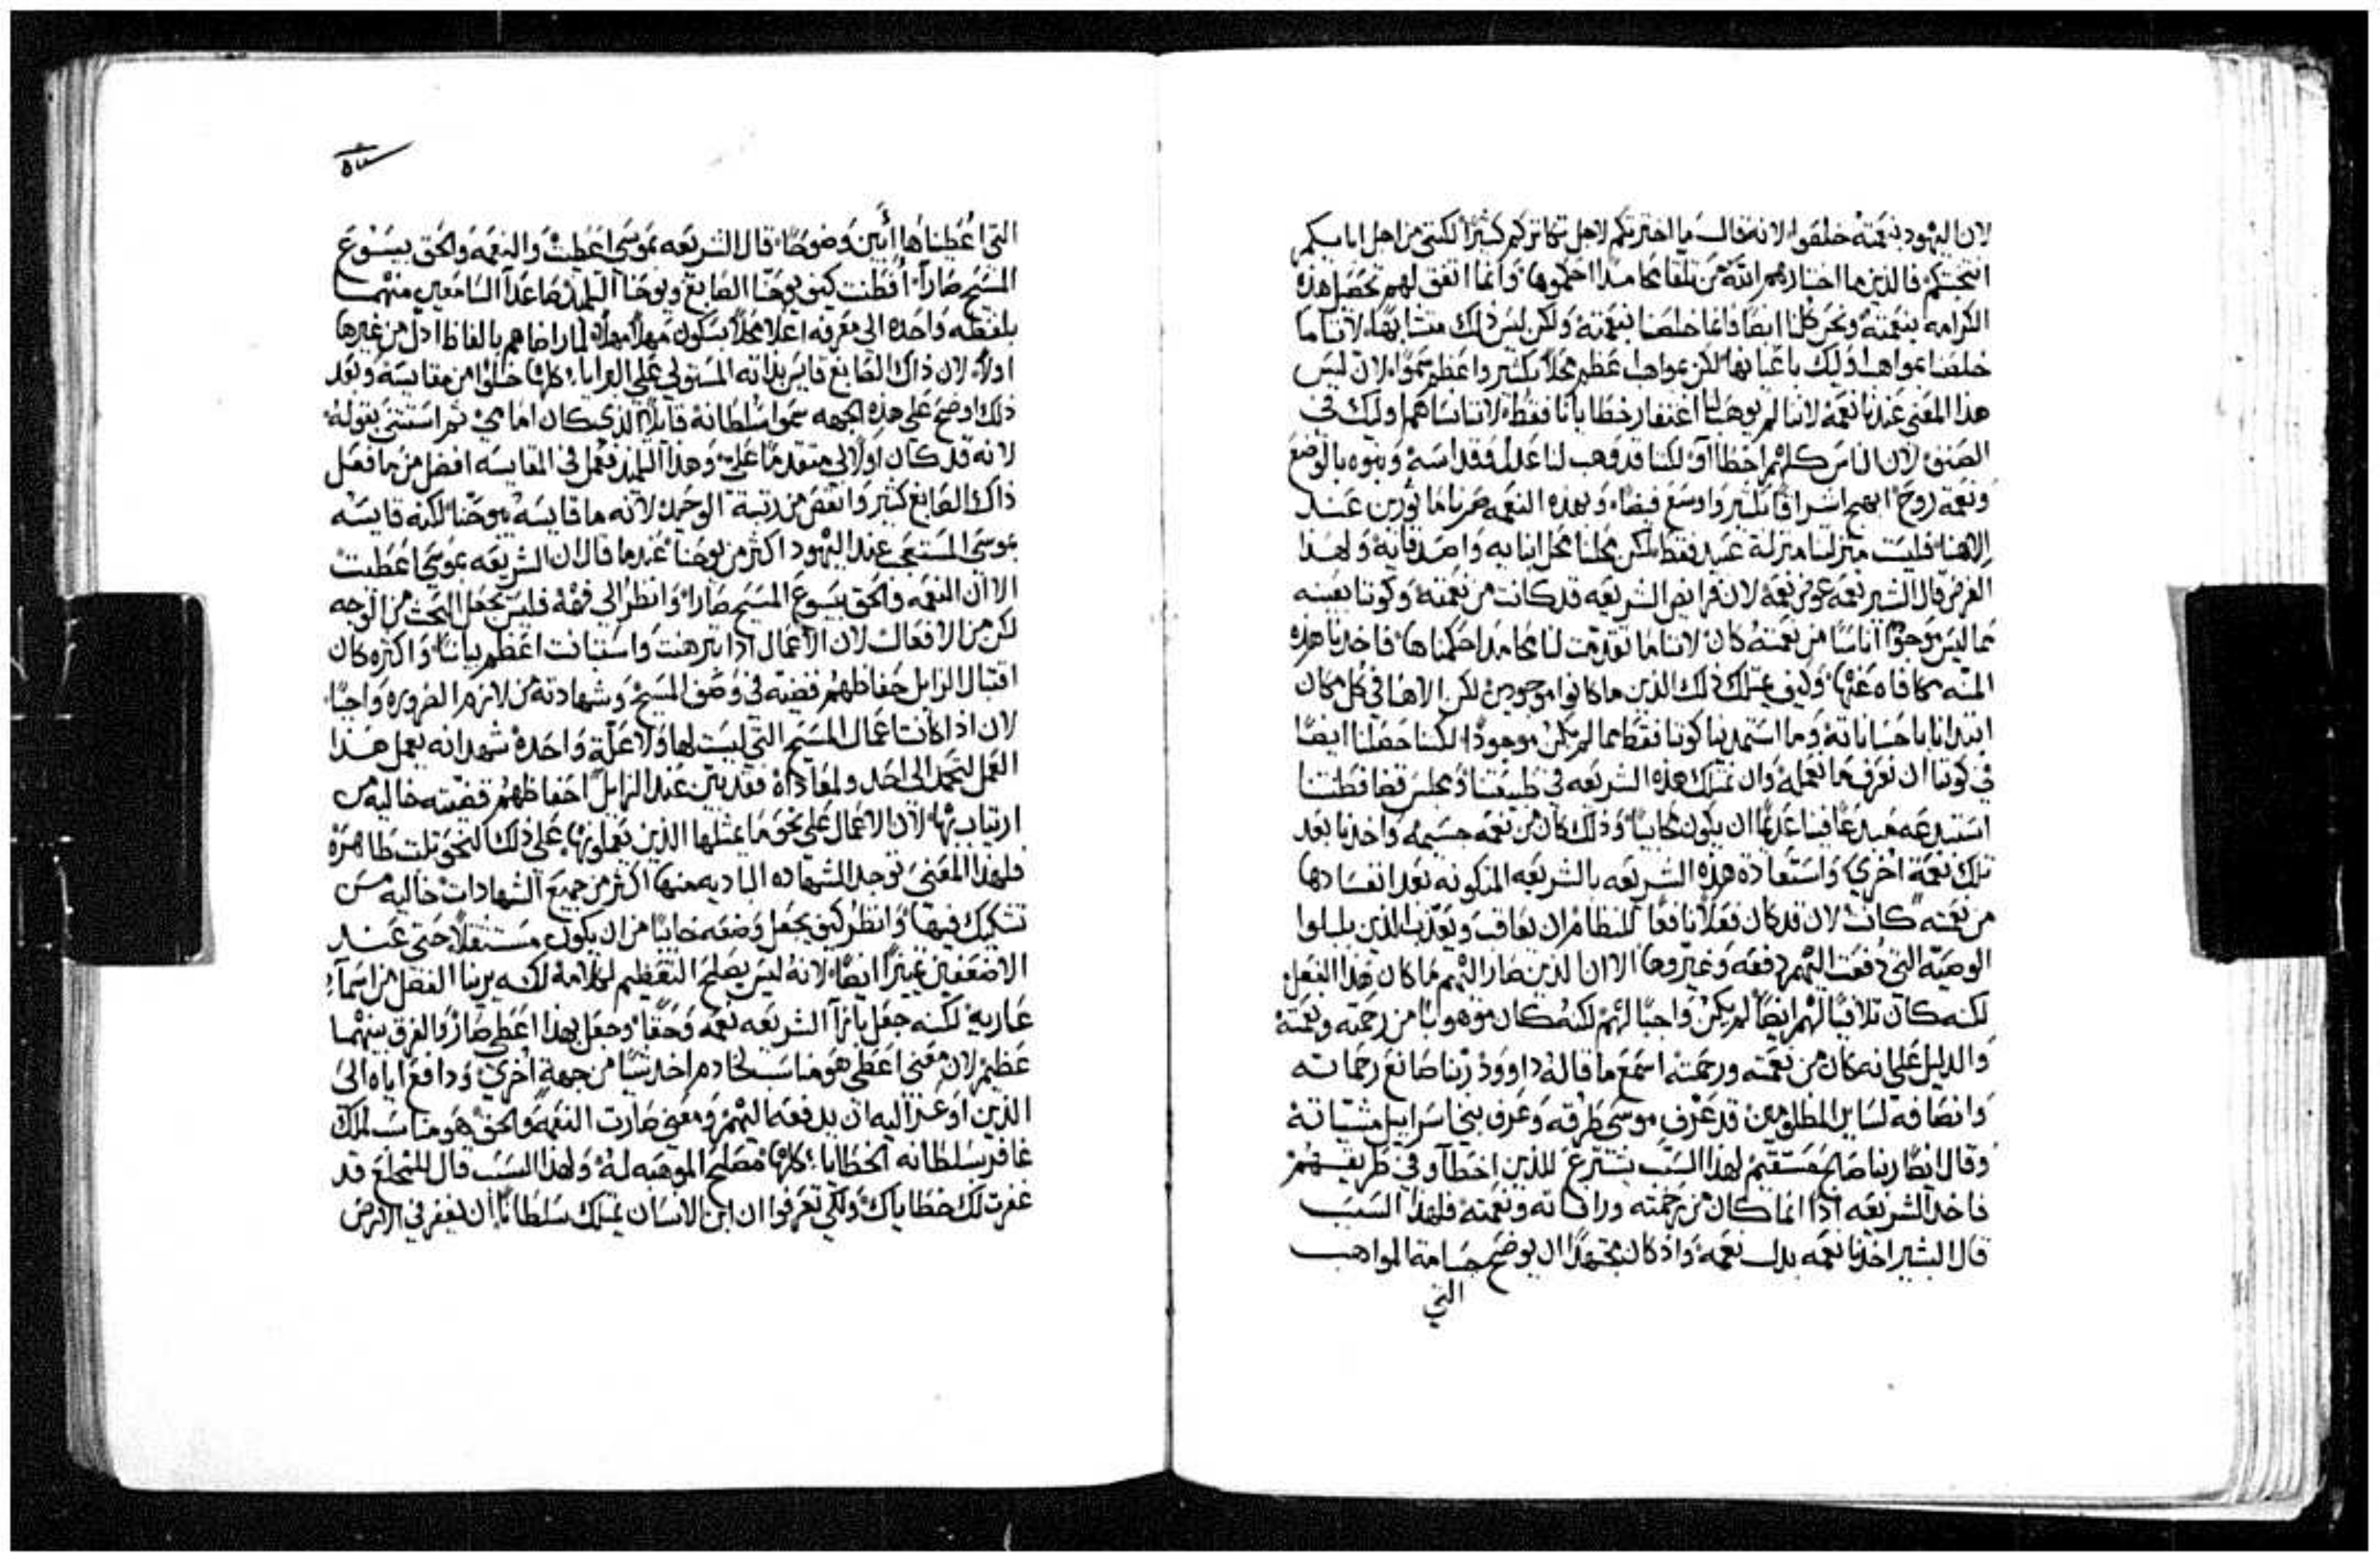 لان اليهود بنعمته خلصوا لانه قال ما اخترتكم لاجل تكاثركم كثيرًا لكنني من اجل ابايكم
انتجبتكم فالذين ما اختارهم الله من تلقا محامد احكموها وانما اتفق لهم تحصيل هذه
الكرامه بنعمته ونحن كلنا ايضًا فانما خلصنا بنعمته ولكن ليس ذلك متشابهًا لاننا ما
خلصنا بمواهب اوليك باعيانها لكن بمواهب اعظم محلاً بكثير واعظم سموًّا لان ليس
هذا المعنى عندنا نعمة لاننا لم يوهب لنا اغتفار خطايانا فقط لاننا نساهم اوليك في
الصنف لان الناس كلهم اخطاوا لكننا قد وهب لنا عدلاً وقداسة وبنوه بالوضع
ونعمة روح ابهج اشراقًا بكثير واوسع فيضًا وبهذه النعمه صرنا ماثورين عند
الاهنا فليست منزلتنا منزلة عبيد فقط لكن محلنا محل ابنايه واصدقايه ولهذا
الغرض قال البشير نعمه عوض نعمة لان فرايض الشريعه قد كانت من نعمته وكوننا بعينه
مما ليس موجودًا اناسًا من نعمته كان لاننا ما تقدمت لنا محامد احكمناها فاخذنا هذه
المنه مكافاه عنها وكيف يمتلك ذلك الذين ما كانوا موجودين لكن الاهنا في كل مكان
ابتدانا باحساناته وما استمدينا كوننا فقط مما لم يكن موجودًا لكننا حصلنا ايضًا
في كوننا ان نعرف ما نعمله وان نمتلك هذه الشريعه في طبيعتنا ومجلس قضا فطنتنا
استبدعه مبدعنا فينا عديمًا ان يكون محابيًا وذلك كان من نعمه جسيمه واخذنا بعد
تلك نعمة اخرى واستعادة هذه الشريعه بالشريعه المكتوبه بعد انفسادها
من نعمته كانت لان قد كان فعلاً نافعًا للنظام ان يعاقب ويعذب الذين بلبلوا
الوصية التي دفعت اليهم دفعه وغيروها الا ان الذين صار اليهم ما كان هذا الفعل
لكنه كان تلافيًا لهم ايضًا لم يكن واجبًا لهم لكنه كان موهوبًا من رحمته ونعمته
والدليل على انه كان من نعمته ورحمته اسمع ما قاله داوود ربنا صانع رحماته
وانصافه لساير المظلومين قد عرف موسى طرقه وعرف بني اسراييل مشياته
وقال ايضًا ربنا صالح مستقيم لهذا السبب يشترع للذين اخطاوا في طريقهم
فاخذ الشريعه اذًا انما كان من رحمته ورافاته ونعمته فلهذا السبب
قال البشير اخذنا نعمه بدل نعمة واذ كان مجتهدًا ان يوضح جسامة المواهب
التي
التي اعطيناها أبين وضوحًا قال الشريعه بموسى اعطيت والنعمه والحق بيسوع
المسيح صارا افطنت كيف يوحنا الصابغ ويوحنا التلميذ صاعدا السامعين منهما
بلفظه واحده الى معرفه اعلا محلاً بسكون مهلاً مهلاً لما راضاهم بالفاظ ادل من غيرها
اولاً لان ذاك الصابغ قايس بذاته المستولي على البرايا كلها خلوًا من مقايسة وبعد
ذلك اوضح على هذه الجهه سمو سلطانه قايلاً الذي كان امامي ثم استثنى بقوله
لانه قد كان اولاً لي متقدمًا علي وهذا التلميذ فعل في المقايسه افضل من ما فعل
ذاك الصابغ كثير وانقص من رتبة الوحيد لانه ما قايسه بيوحنا لكنه قايسه
بموسى المستعجب عند اليهود اكثر من يوحنا عندما قال ان الشريعه بموسى اعطيت
الا ان النعمه والحق بيسوع المسيح صارا وانظر الى فهمه فليس يجعل البحث من الوجه
لكن من الافعال لان الاعمال اذا تبرهنت واستبانت اعظم بيانًا واكثره كان
اقتبال الزايل حفاظهم قضيته في وصف المسيح وشهادته من لازم الضروره واجبًا
لان اذا كانت اعمال المسيح التي ليست لها ولا علة واحدة شهد انه يعمل هذا
العمل لتحمد الى احد ولمعاداة فقد تبين عند الزايل احفاظهم قضيته خاليه من
ارتياب بها لان الاعمال على نحو ما يمثلها الذين يعملونها على ذلك النحو تلبث ظاهرة
فلهذا المعنى توجد الشهاده الباديه منها اكثر من جميع الشهادات خاليه من
تشكيك فيها وانظر كيف يجعل وضعه خاليًا من ان يكون مستثقلاً حتى عند
الاضعفين تمييزًا ايضًا لانه ليس يصلح التعظيم لكلامه لكنه يرينا الفصل من اسماء
عاريه لكنه جعل بازا الشريعه نعمه وحقًا وجعل بهذا اعطي صار والفرق بينهما
عظيم لان معنى اعطي هو مناسب لخادم اخذ شيًا من جهة اخرى ودافع اياه الى
الذين اوعز اليه ان يدفعه اليهم ومعنى صارت النعمه والحق هو مناسب لملك
غافر بسلطانه الخطايا كلها مصلح الموهبه له ولهذا السبب قال للمخلع قد
غفرت لك خطاياك ولكي تعرفوا ان ابن الانسان يمتلك سلطانًا ان يغفر في الارض